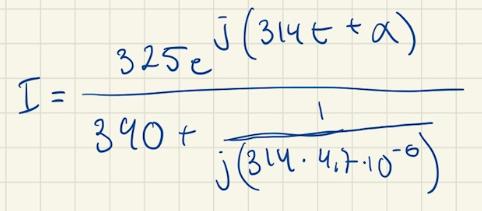 I = 325e^j(314t + α) / (390 + 1 / j(314 · 4,7 · 10^-6))